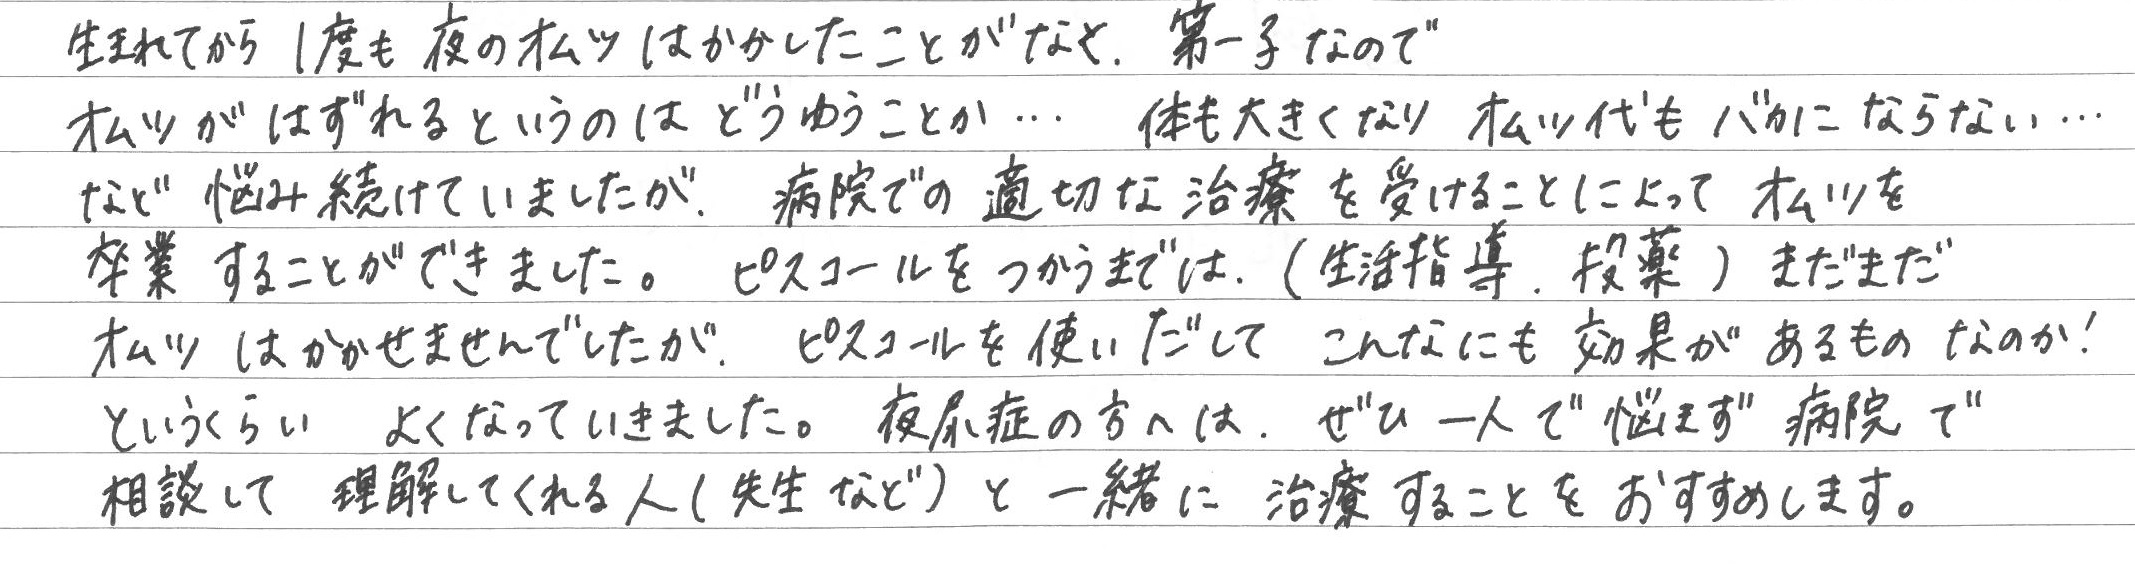 生まれてから1度も 夜のオムツはかかしたことがなく、第一子なので
オムツがはずれるというのは どうゆうことか… 体も大きくなり オムツ代もバカにならない…
など 悩み続けていましたが、病院での適切な治療を受けることによって オムツを
卒業することができました。ピスコールをつかうまでは、(生活指導、投薬) まだまだ
オムツはかかせませんでしたが、ピスコールを使いだして こんなにも効果があるものなのか!
というくらい よくなっていきました。夜尿症の方へは、ぜひ一人で悩まず病院で
相談して 理解してくれる人(先生など)と一緒に 治療することをおすすめします。